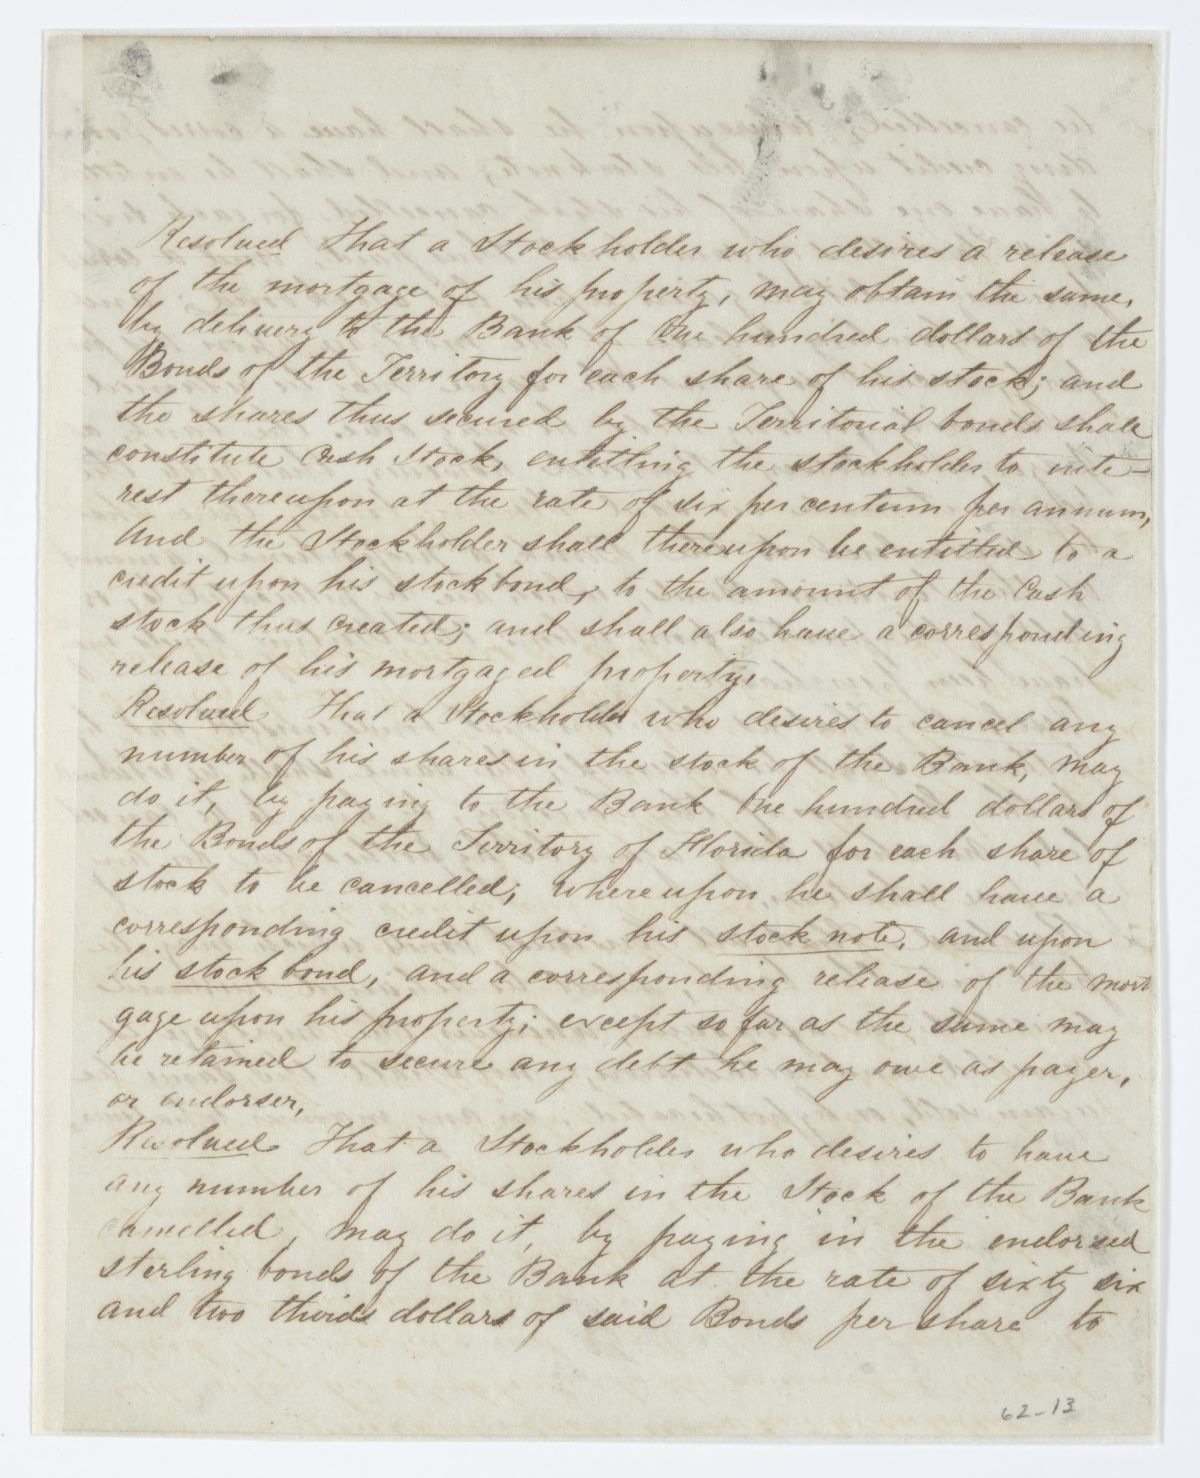 Resolved That a Stockholder who desires a release
of the mortgage of his property, may obtain the same,
by delivery to the Bank of One hundred dollars of the
Bonds of the Territory for each share of his stock; and
the shares thus secured by the Territorial bonds shall
constitute Cash Stock, entitling the stockholder to inte-
rest thereupon at the rate of six per centum per annum,
And the Stockholder shall thereupon be entitled to a
credit upon his stock bond, to the amount of the Cash
stock thus created; and shall also have a corresponding
release of his mortgaged property.
Resolved That a Stockholder who desires to cancel any
number of his shares in the stock of the Bank, may
do it, by paying to the Bank One hundred dollars of
the Bonds of the Territory of Florida for each share of
stock to be cancelled; whereupon he shall have a
corresponding credit upon his stock note, and upon
his stock bond, and a corresponding release of the mort
gage upon his property; except so far as the same may
be retained to secure any debt he may owe as payer,
or endorser,
Resolved That a Stockholder who desires to have
any number of his shares in the Stock of the Bank
cancelled, may do it, by paying in the endorsed
sterling bonds of the Bank at the rate of sixty six
and two thirds dollars of said Bonds per share to
62-13